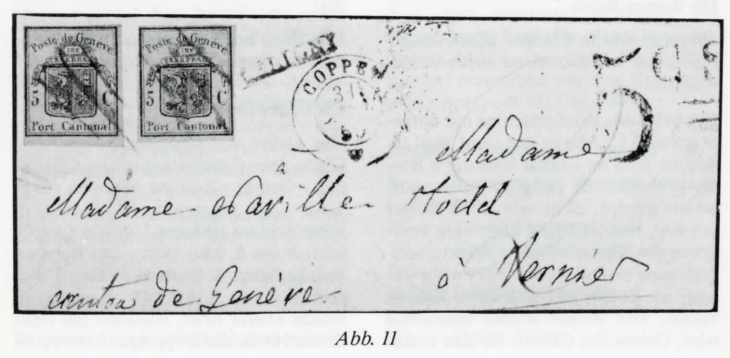 Poste de Genève
5 C
Port Cantonal
Poste de Genève
5 C
Port Cantonal
COPPET
31
5
Madame
Madame Naville
à Vernier
canton de Genève
Abb. 11